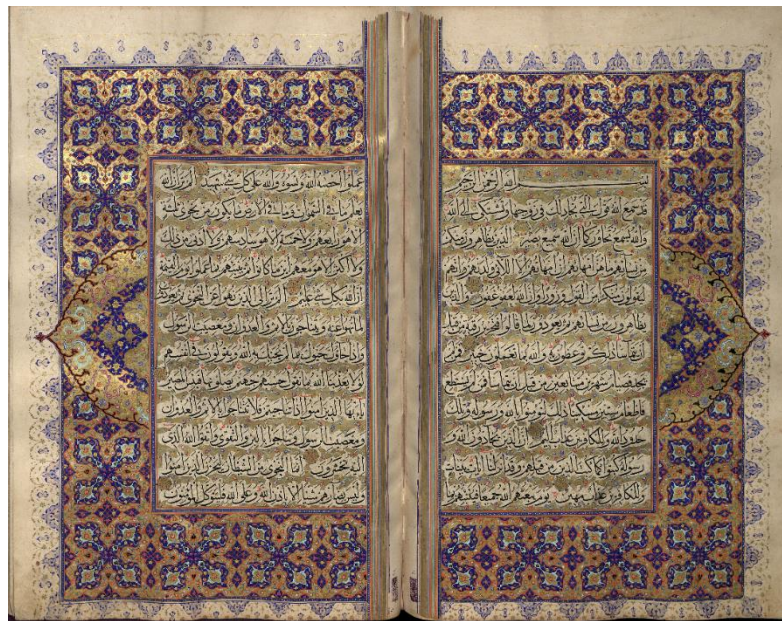 بسم الله الرحمن الرحيم
قد سمع الله قول التي تجادلك في زوجها وتشتكي إلى الله
والله يسمع تحاوركما إن الله سميع بصير الذين يظاهرون منكم
من نسائهم ما هن أمهاتهم إن أمهاتهم إلا اللائي ولدنهم وإنهم
ليقولون منكرا من القول وزورا وإن الله لعفو غفور والذين
يظاهرون من نسائهم ثم يعودون لما قالوا فتحرير رقبة من قبل
أن يتماسا ذلكم توعظون به والله بما تعملون خبير فمن لم
يجد فصيام شهرين متتابعين من قبل أن يتماسا فمن لم يستطع
فإطعام ستين مسكينا ذلك لتؤمنوا بالله ورسوله وتلك
حدود الله وللكافرين عذاب أليم إن الذين يحادون الله و
رسوله كبتوا كما كبت الذين من قبلهم وقد أنزلنا آيات بينات
وللكافرين عذاب مهين يوم يبعثهم الله جميعا فينبئهم بما
عملوا أحصيه الله ونسوه والله على كل شيء شهيد ألم تر أن الله
يعلم ما في السموات وما في الأرض ما يكون من نجوى ثلثة
إلا هو رابعهم ولا خمسة إلا هو سادسهم ولا أدنى من ذلك
ولا أكثر إلا هو معهم أين ما كانوا ثم ينبئهم بما عملوا يوم القيمة
إن الله بكل شيء عليم ألم تر إلى الذين نهوا عن النجوى ثم يعودون
لما نهوا عنه ويتناجون بالإثم والعدوان ومعصيت الرسول
وإذا جاؤك حيوك بما لم يحيك به الله ويقولون في أنفسهم
لولا يعذبنا الله بما نقول حسبهم جهنم يصلونها فبئس المصير
يا أيها الذين آمنوا إذا تناجيتم فلا تتناجوا بالإثم والعدوان
ومعصيت الرسول وتناجوا بالبر والتقوى واتقوا الله الذي
إليه تحشرون إنما النجوى من الشيطان ليحزن الذين آمنوا
وليس بضارهم شيئا إلا بإذن الله وعلى الله فليتوكل المؤمنون